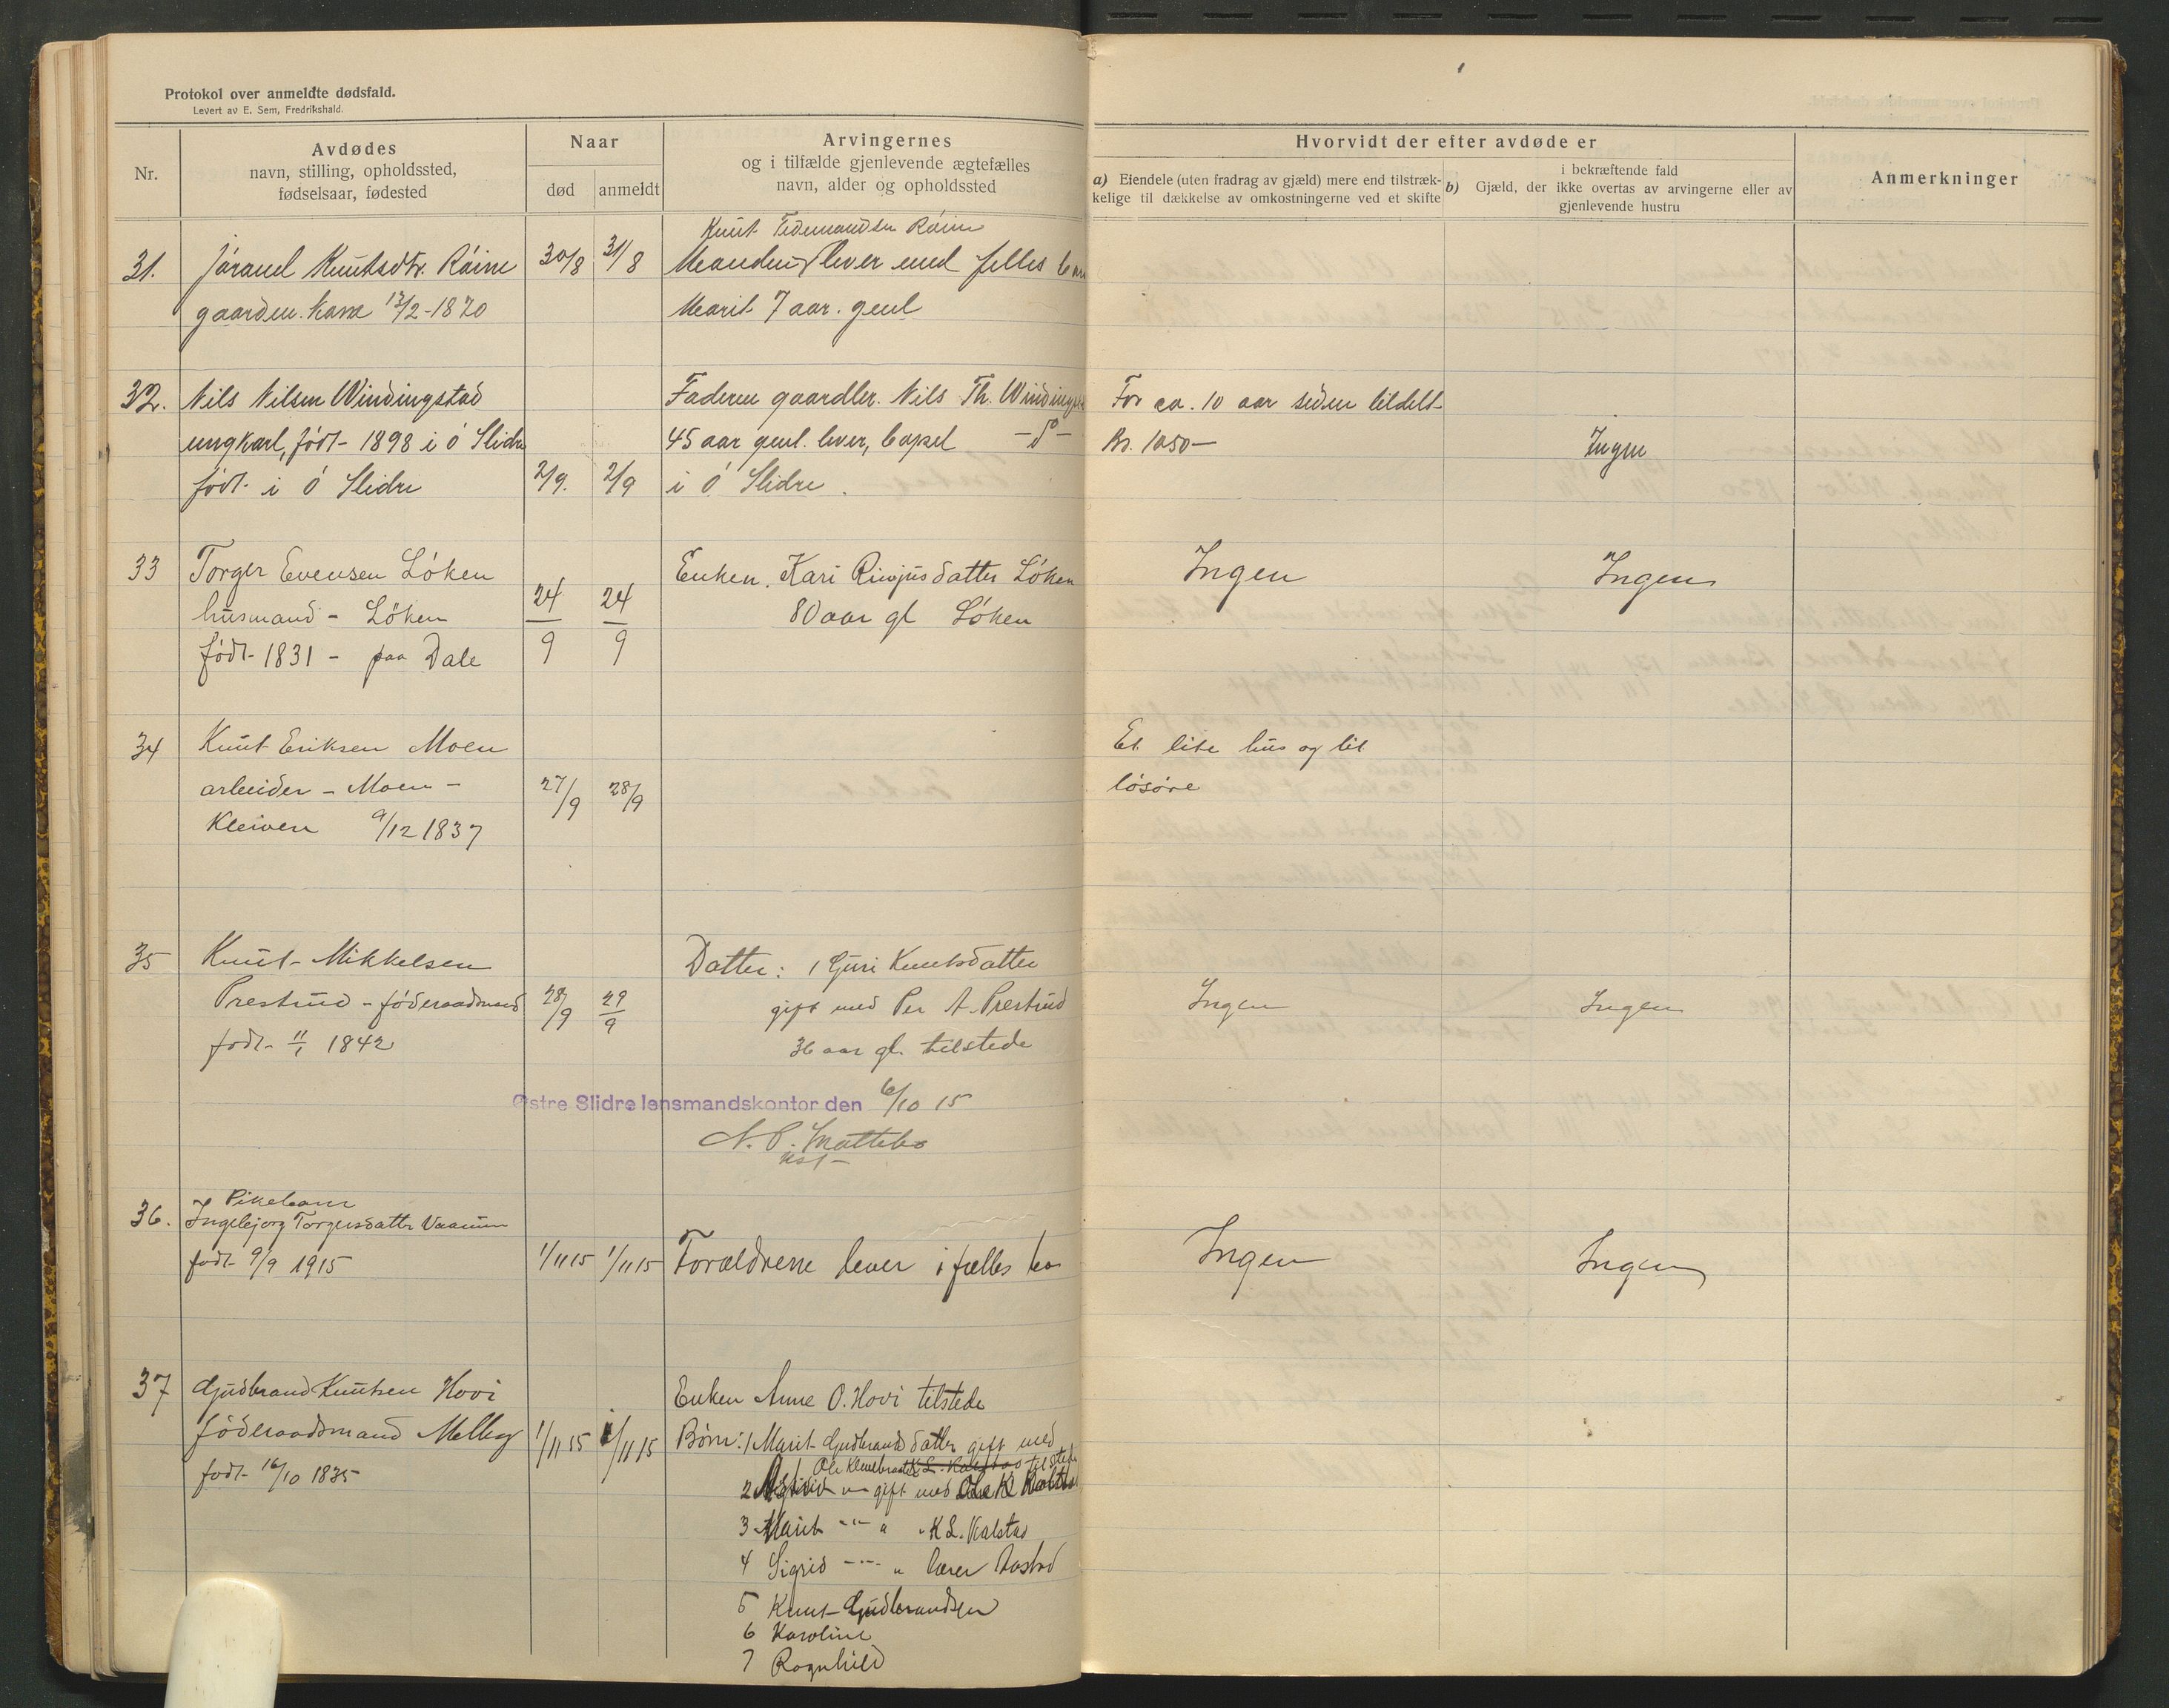 Protokol over anmeldte dødsfald.
Levert av E. Sem, Fredrikshald.
Nr.
Avdødes
navn, stilling, opholdssted,
fødselsaar, fødested
Naar
død
anmeldt
Arvingernes
og i tilfælde gjenlevende ægtefælles
navn, alder og opholdssted
Hvorvidt der efter avdøde er
a) Eiendele (uten fradrag av gjæld) mere end tilstræk-
kelige til dækkelse av omkostningerne ved et skifte
b) Gjæld, der
i bekræftende fald
ikke overtas av arvingerne eller av
gjenlevende hustru
Anmerkninger
31. Jórand Knutsdtr. Róine 30/8 31/8
Knut Tidemandsen Róine
Manden lever med felles barn
gaardm. kone 13/2-1870
Marit 7 aar. geul
32. Nils Nilsen Windingstad
Faderen gaardbr. Nils Th. Windingst
For ca. 10 aar siden tildelt
ungkarl, født- 1898 i Ó Slidre
45 aar gml. lever, bopel -d°-
Kr. 1050-
Ingen
født- i Ó Slidre 2/9. 2/9
i Ó Slidre.
33 Torger Evensen Lóken
Enken. Kari Ringusdatter Lóken
Ingen
Ingen
husmand - Lóken 24/9 24/9
80 aar gl Lóken
født- 1831 - paa Dale
34 Knut Eriksen Moen
Et lite hus og lit
arbeider - Moen - 27/9 28/9
lósóre
Kleiven 9/12 1837
35 Knut Mikkelsen
Datter: 1 Guri Knutsdatter
Prestrud - fóderaadmand 28/9 29/9
gift med Per A. Prestrud
Ingen
Ingen
født- 11/1 1842
36 aar gl. tilstede
Østre Slidre lensmandskontor den 6/10 15
N. P. Mattebo
kst-
36. Pikebarn
Ingebjorg Torgersdatter
født 9/9 1915 1/11 15 1/11 15
Forældrene lever i fælles bo
Ingen
Ingen
37 Gudbrand Knutsen Hovi
Enken Anne O. Hovi tilstede
fóderaadsmand Melby 1/11 15 1/11 15
Børn: 1 Marit Gudbrandsdatter gift med
født- 16/10 1835
Ole K. L. Kalstad tilstede
2 Astrid gift med Ole K
3 Marit -"- " K L. Kalstad
4 Sigrid -"- " lærer
5 Knut Gudbrandsen
6 Karoline
7 Ragnhild